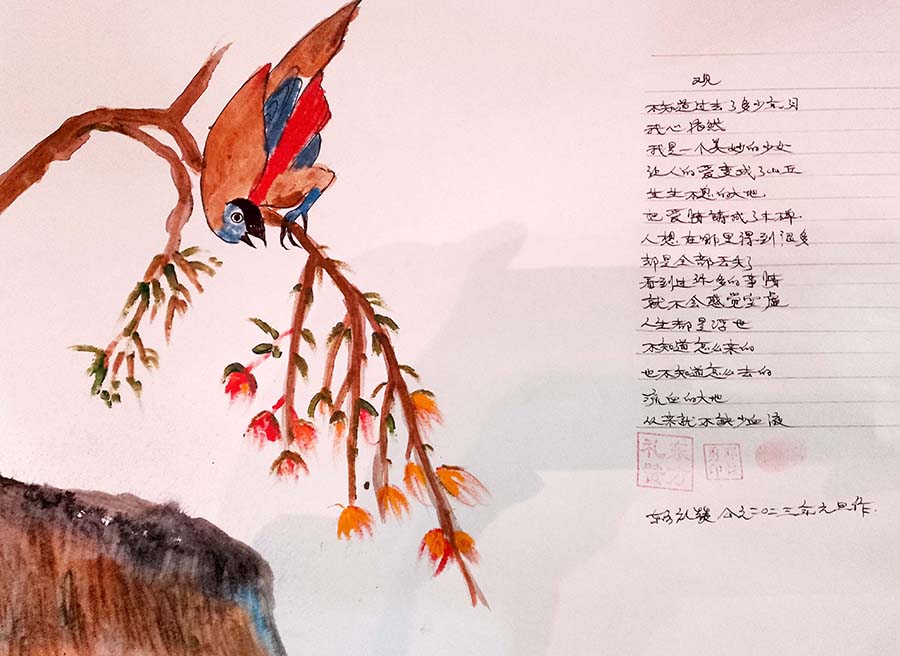 观
不知道过去了多少岁月
我心悟然
我是一个美妙的少女
让人的爱变成了山丘
生生不息的大地
把爱情铸成了木碑
人想在哪里得到很多
却是全部丢失了
看到过许多的事情
就不会感觉空虚
人生都是浮世
不知道怎么来的
也不知道怎么去的
流血的大地
从来就不缺少血液
东方礼赞
东方礼赞 公元二〇二三年元旦作.